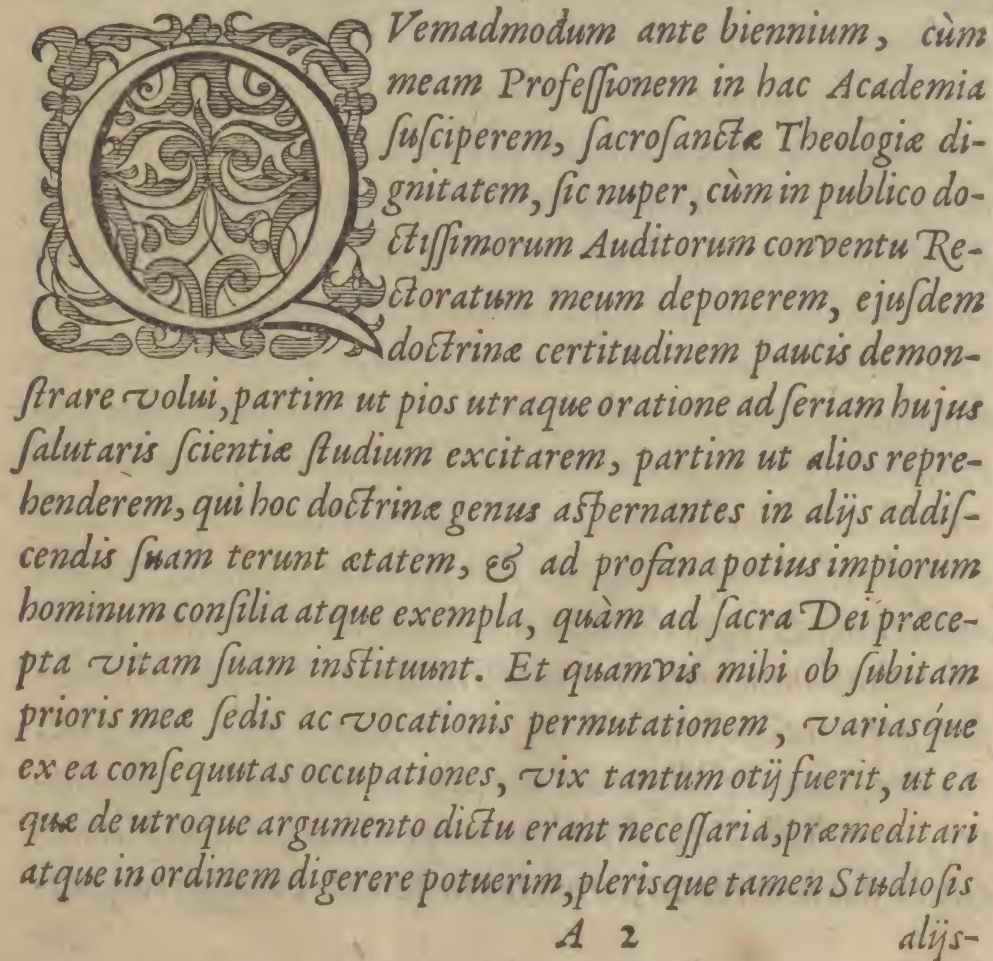 QVemadmodum ante biennium, cùm
meam Profeſſionem in hac Academia
ſuſciperem, ſacroſanctæ Theologiæ di-
gnitatem, ſic nuper, cùm in publico do-
ctiſſimorum Auditorum conventu Re-
ctoratum meum deponerem, ejuſdem
doctrinæ certitudinem paucis demon-
ſtrare volui, partim ut pios utraque oratione ad ſeriam hujus
ſalutaris ſcientiæ ſtudium excitarem, partim ut alios repre-
henderem, qui hoc doctrinæ genus aſpernantes in alijs addiſ-
cendis ſuam terunt ætatem, & ad profana potius impiorum
hominum conſilia atque exempla, quàm ad ſacra Dei præce-
pta vitam ſuam inſtituunt. Et quamvis mihi ob ſubitam
prioris meæ ſedis ac vocationis permutationem, variasq́ue
ex ea conſequutas occupationes, vix tantum otij fuerit, ut ea
quæ de utroque argumento dictu erant neceſſaria, præmeditari
atque in ordinem digerere potuerim, plerisque tamen Studioſis
A 2 alijs-